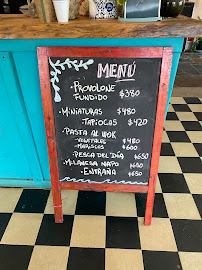 MENÚ
·PROVOLONE
FUNDIDO $380
·MINIATURAS $480
·TAPIOCAS $420
·PASTA AL WOK
-VEGETALES $480
-MARISCOS $600
·PESCA DEL DÍA $650
·MILANESA NAPO $650
·ENTRAÑA $650